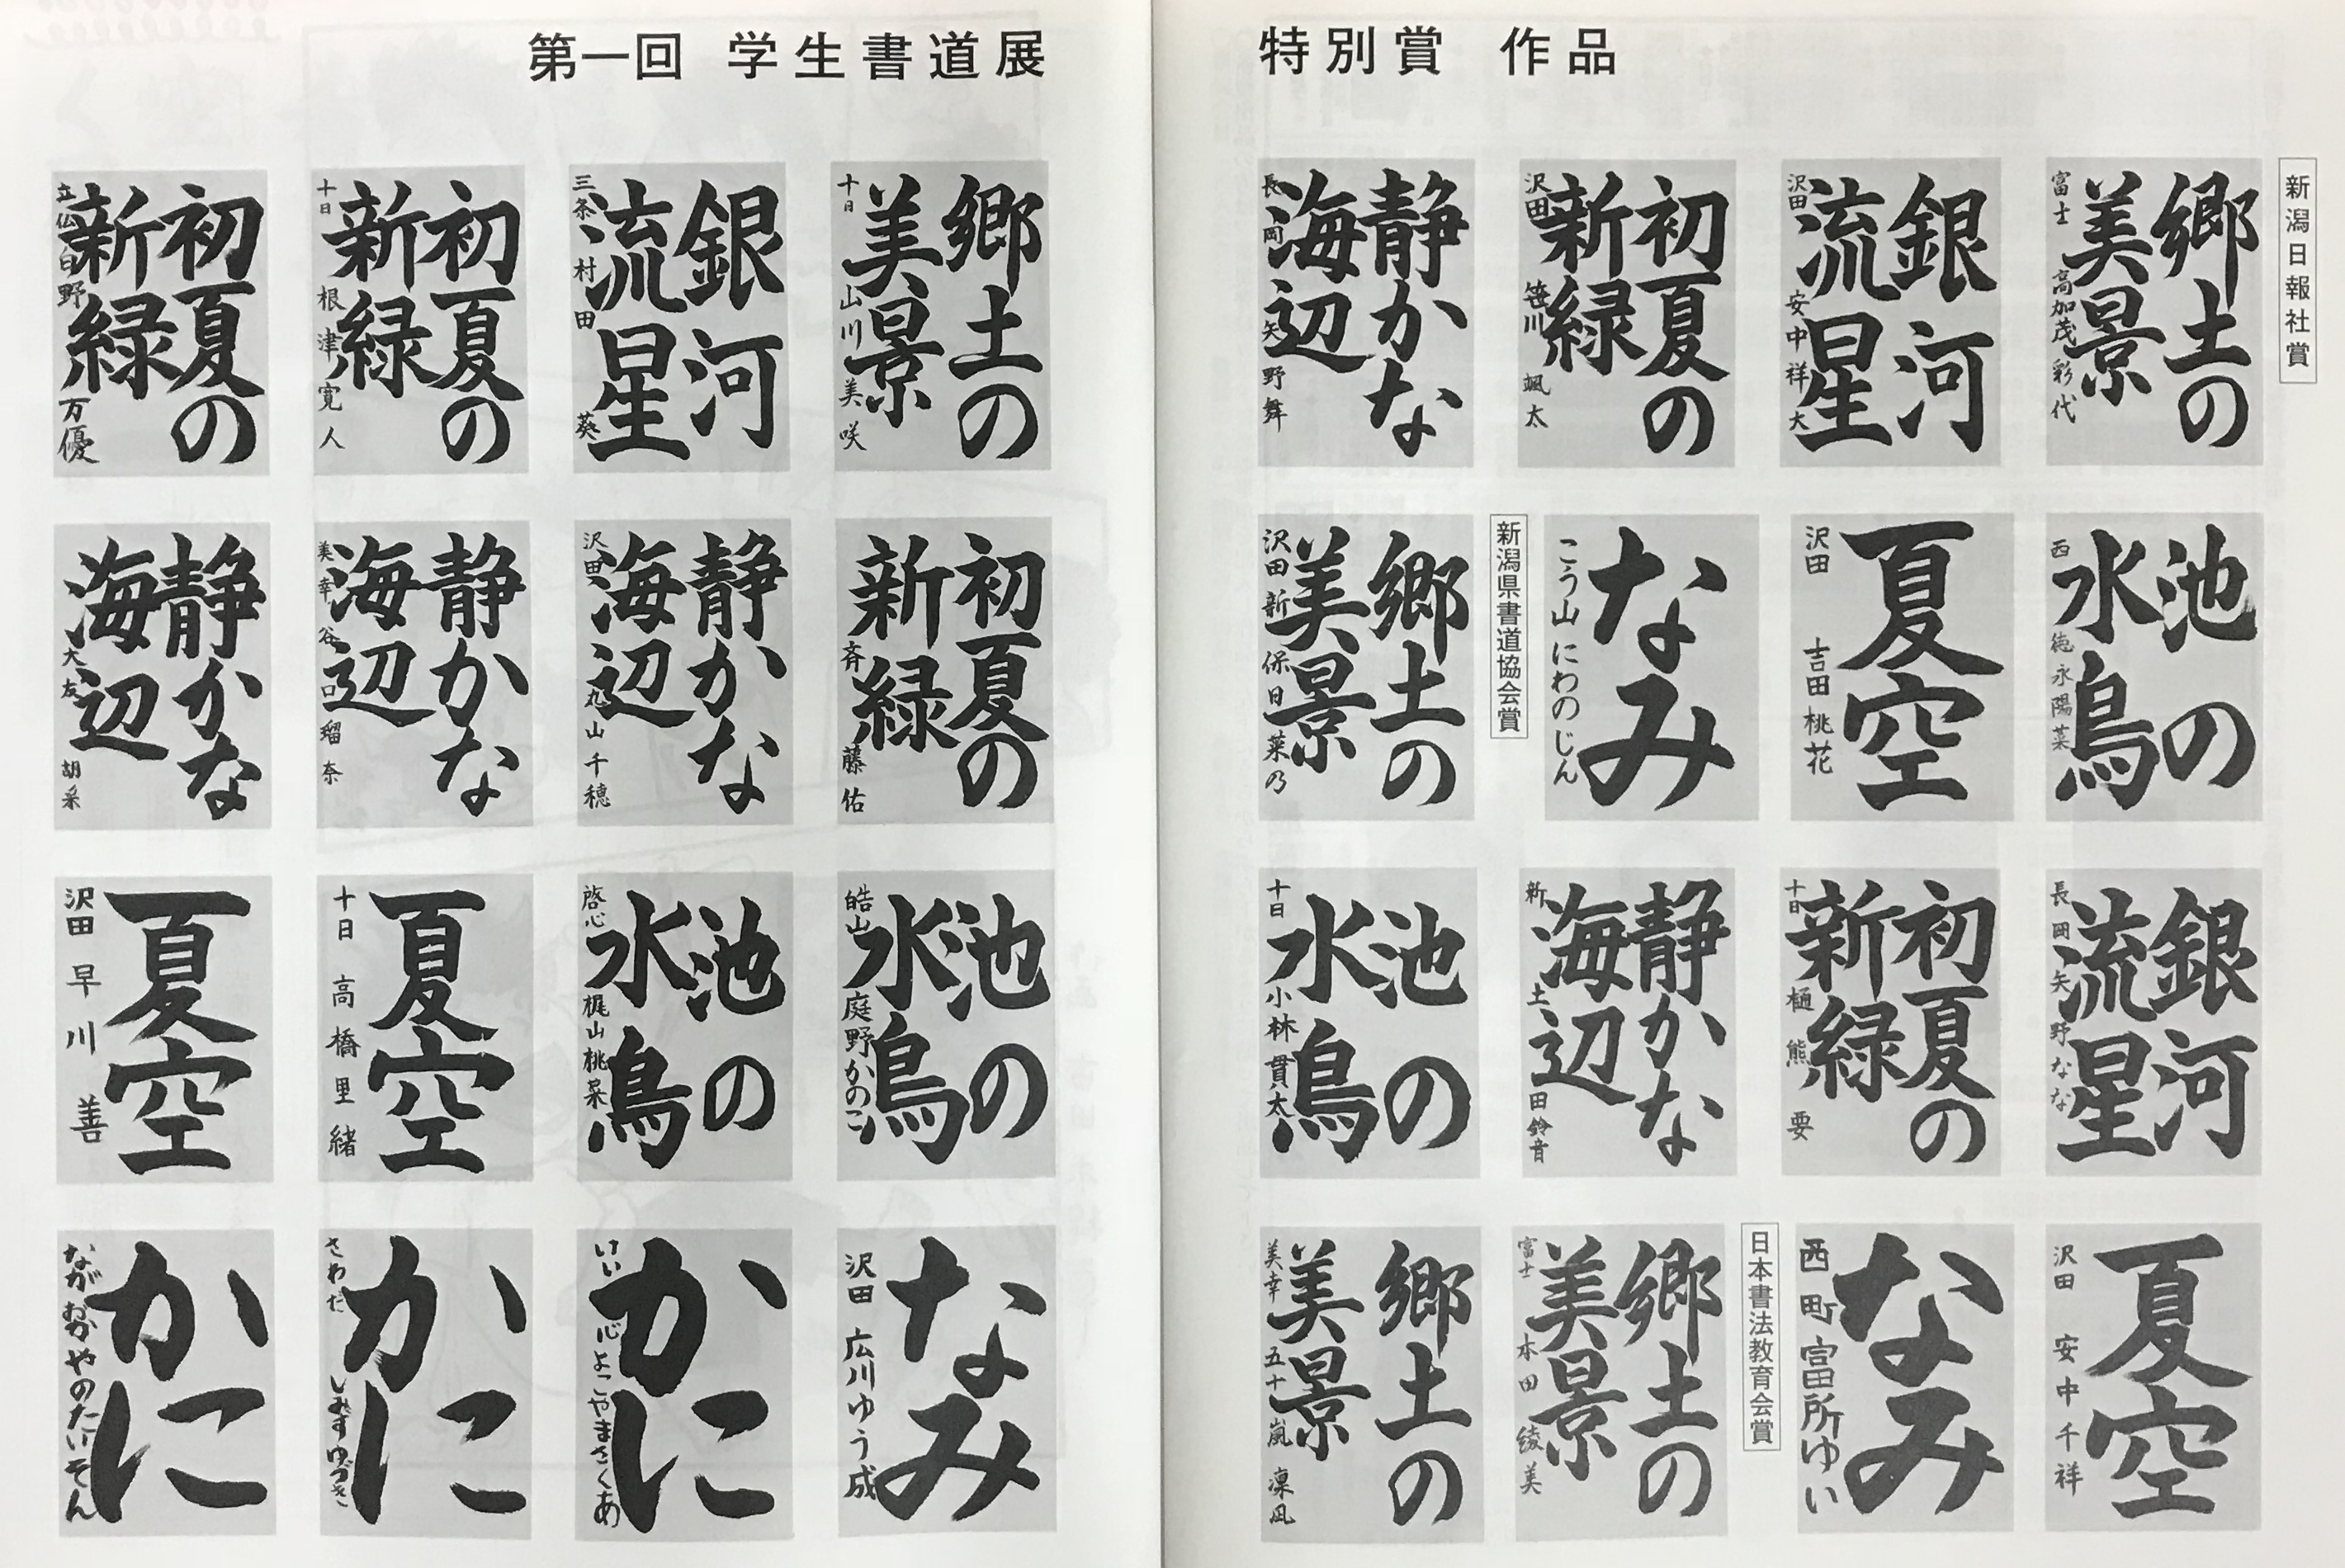 第一回 学生書道展
特別賞 作品
新潟日報社賞
郷土の
美景
富士 高加茂彩代
銀河
流星
沢田 安中祥大
初夏の
新緑
沢田 笹川颯太
静かな
海辺
長岡 矢野舞
池の
水鳥
西 徳永陽菜
夏空
沢田 吉田桃花
なみ
こう山 にわのじん
新潟県書道協会賞
郷土の
美景
沢田 新保日菜乃
銀河
流星
長岡 矢野なな
初夏の
新緑
十日 樋熊要
静かな
海辺
新 土田鈴音
池の
水鳥
十日 小林貫太
夏空
沢田 安中千祥
なみ
西町 富所ゆい
日本書法教育会賞
郷土の
美景
富士 本田綾美
郷土の
美景
美幸 五十嵐凜
郷土の
美景
十日 山川美咲
銀河
流星
三条 村田葵
初夏の
新緑
十日 根津寛人
初夏の
新緑
野万優
初夏の
新緑
斉藤佑
静かな
海辺
沢田 丸山千穂
静かな
海辺
美幸 谷口瑠奈
静かな
海辺
大友胡采
池の
水鳥
皓山 庭野かのこ
池の
水鳥
啓心 梶山桃菜
夏空
十日 高橋里緒
夏空
沢田 早川善
なみ
沢田 広川ゆう成
かに
けい心 よこやまさくあ
かに
さわだ しみずゆづき
かに
ながおか やのたいぞん